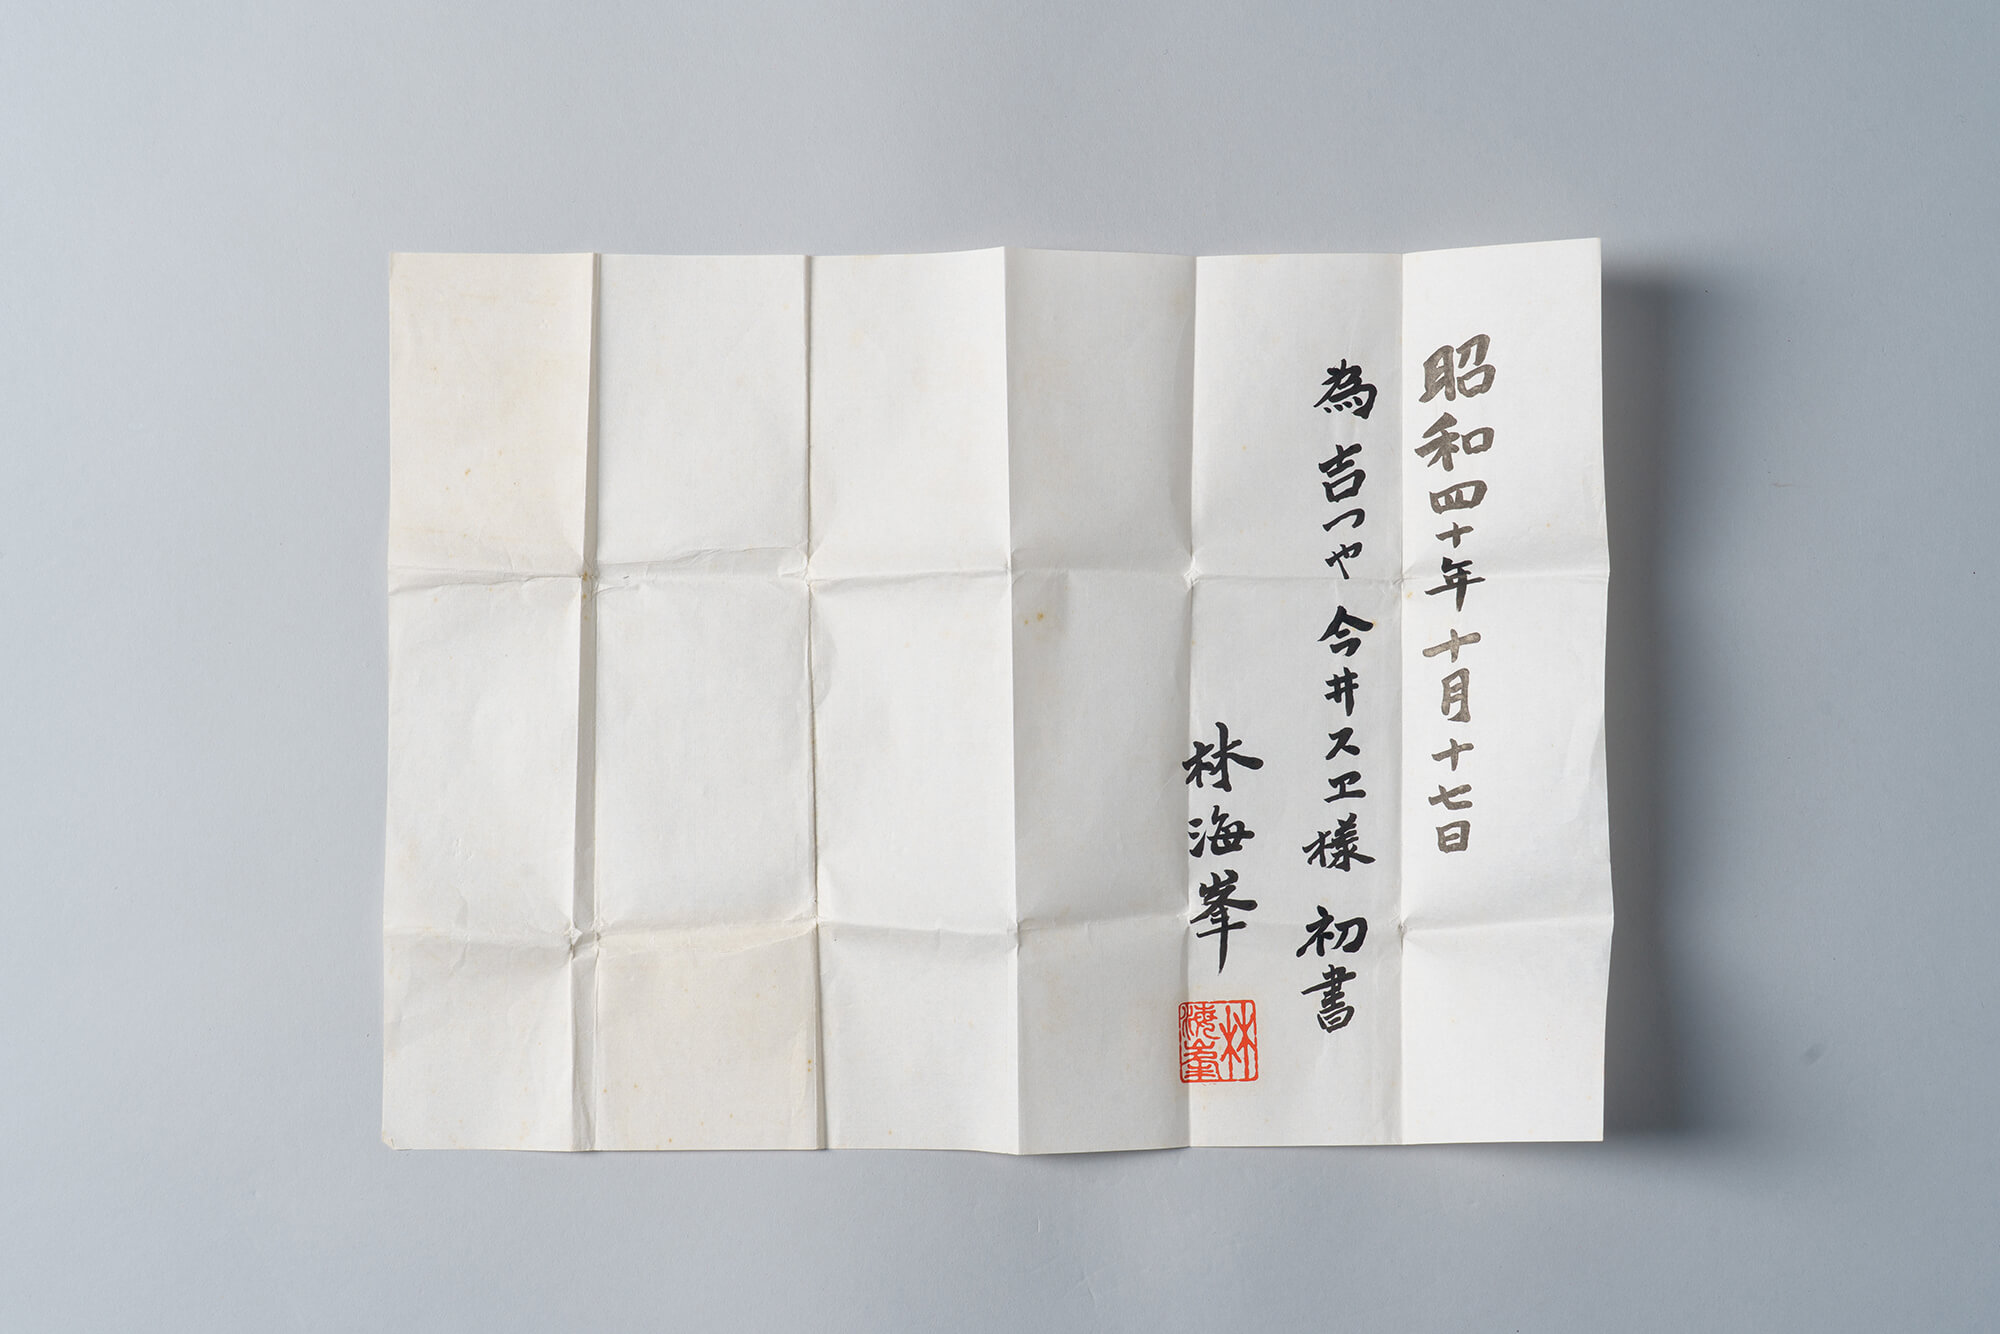 昭和四十年十月十七日
為 吉つや 今井スヱ様 初書
林海峯
林海峯